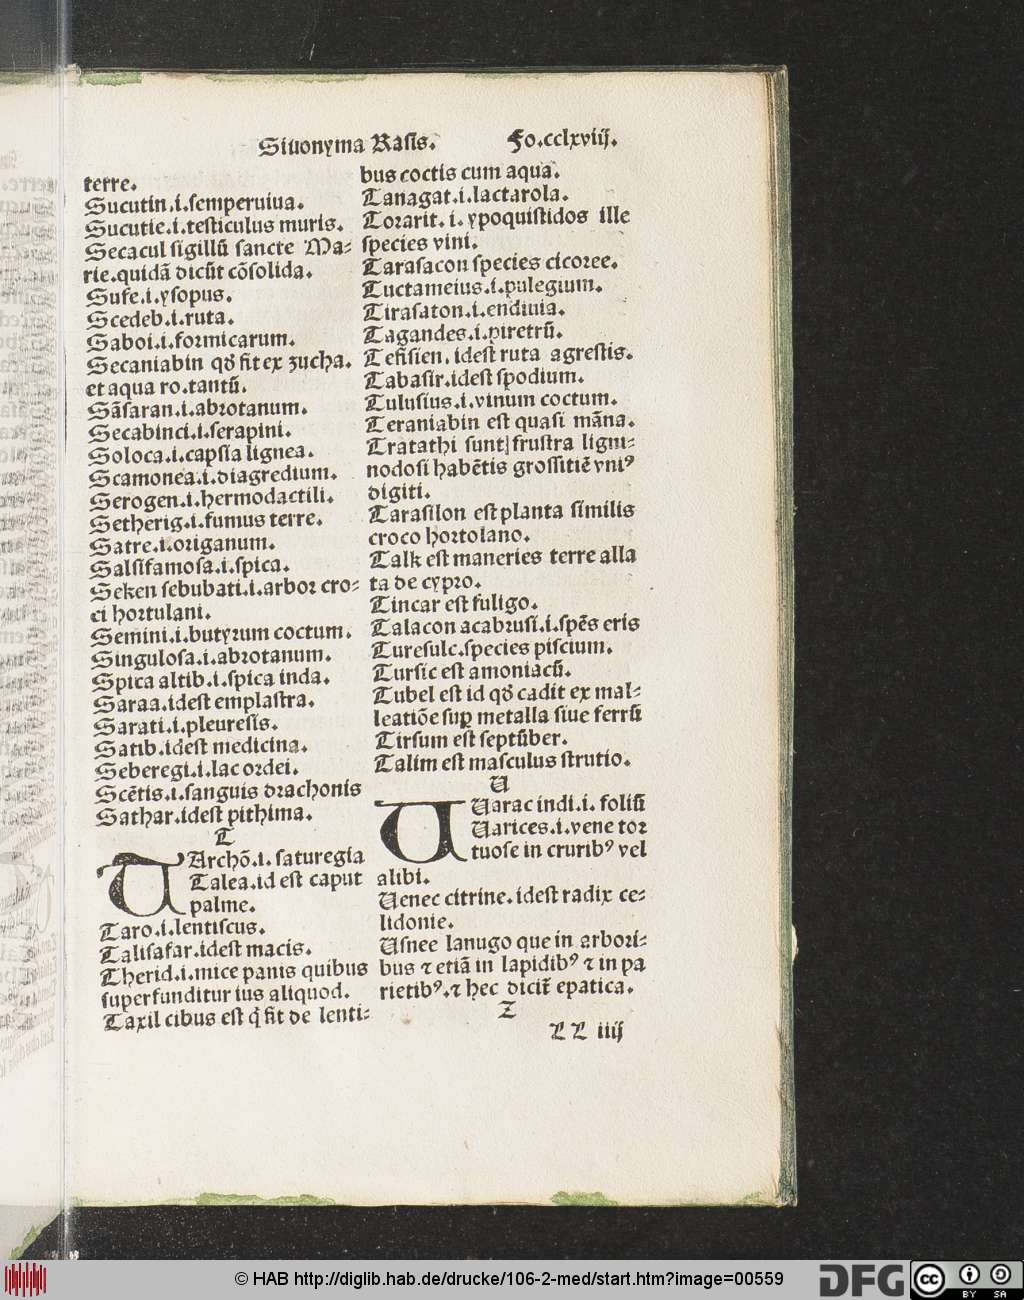 Siuonyma Rasis. Fo.cclxviij.
terre.
Sucutin.i.semperuiua.
Sucutie.i.testiculus muris.
Secacul sigillũ sancte Ma⸗
rie.quidã dicũt cõsolida.
Sufe.i.ysopus.
Scedeb.i.ruta.
Saboi.i.formicarum.
Secaniabin qđ fit ex zucha.
et aqua ro.tantũ.
Sãsaran.i.abrotanum.
Secabinci.i.serapini.
Soloca.i.capsia lignea.
Scamonea.i.diagredium.
Serogen.i.hermodactili.
Setherig.i.fumus terre.
Satre.i.origanum.
Salsifamosa.i.spica.
Seken sebubati.i.arbor cro⸗
ci hortulani.
Semini.i.butyrum coctum.
Singulosa.i.abrotanum.
Spica altib.i.spica inda.
Saraa.idest emplastra.
Sarati.i.pleuresis.
Satib.idest medicina.
Seberegi.i.lac ordei.
Scẽtis.i.sanguis drachonis
Sathar.idest pithima.
T
TArchõ.i.saturegia
Talea.id est caput
palme.
Taro.i.lentiscus.
Talisafar.idest macis.
Therid.i.mice panis quibus
superfunditur ius aliquod.
Taxil cibus est q̃ fit de lenti⸗
bus coctis cum aqua.
Tanagat.i.lactarola.
Torarit.i.ypoquistidos ille
species vini.
Tarasacon species cicoree.
Tuctameius.i.pulegium.
Tirasaton.i.endiuia.
Tagandes.i.piretrũ.
Tefisien.idest ruta agrestis.
Tabasir.idest spodium.
Tulusius.i.vinum coctum.
Teraniabin est quasi mãna.
Tratathi sunt frustra ligni⸗
nodosi habẽtis grossitiẽ vniꝰ
digiti.
Tarasilon est planta similis
croco hortolano.
Talk est maneries terre alla
ta de cypro.
Tincar est fuligo.
Talacon acabrusi.i.spẽs eris
Turesulc.species piscium.
Tursic est amoniacũ.
Tubel est id qđ cadit ex mal⸗
leatiõe suꝑ metalla siue ferrũ
Tirsum est septũber.
Talim est masculus strutio.
U
UUarac indi.i.foliũ
Uarices.i.vene tor
tuose in cruribꝰ vel
alibi.
Uenec citrine.idest radix ce⸗
lidonie.
Usnee lanugo que in arbori⸗
bus ⁊ etiã in lapidibꝰ ⁊ in pa
rietibꝰ.⁊ hec dicit̃ epatica.
Z
LL iiij
© HAB http://diglib.hab.de/drucke/106-2-med/start.htm?image=00559
DFG
cc BY SA